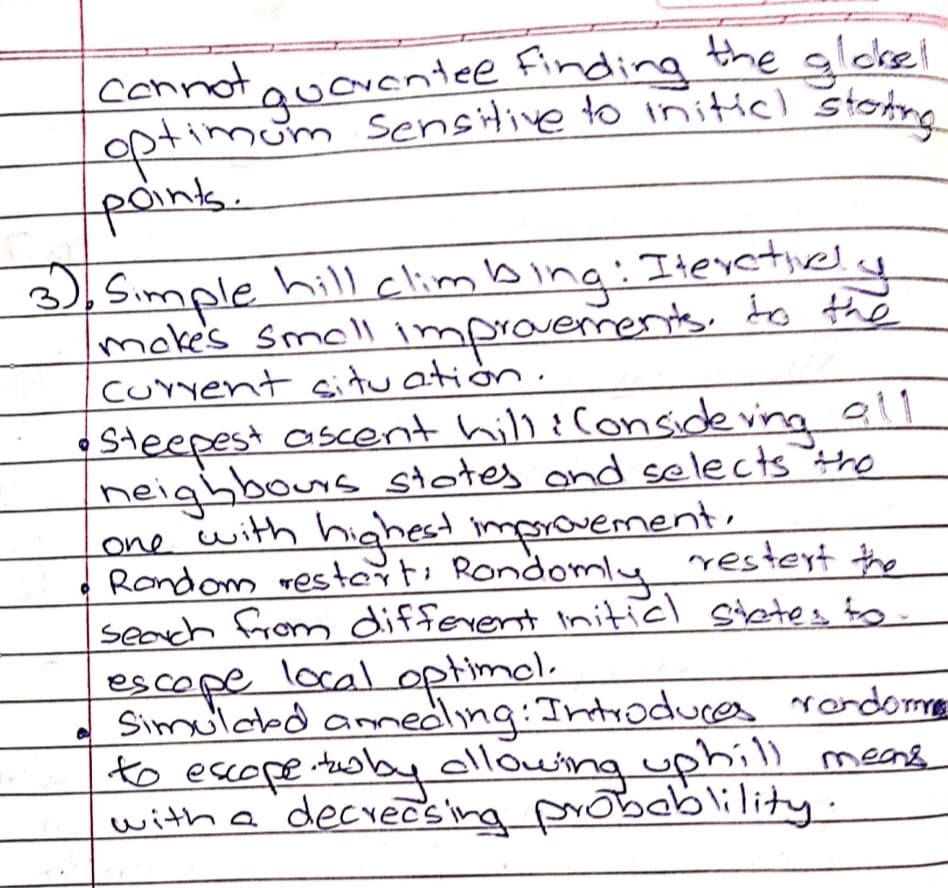 cannot guarantee finding the global
optimum sensitive to initial starting
points.
3). Simple hill climbing: Iteratively
makes small improvements. to the
current situation.
• Steepest ascent hill: Considering all
neighbours states and selects the
one with highest improvement.
• Random restart: Randomly restart the
search from different initial states to
escape local optimal.
• Simulated annealing: Introduces randomns
to escape by allowing uphill means
with a decreasing probablility.